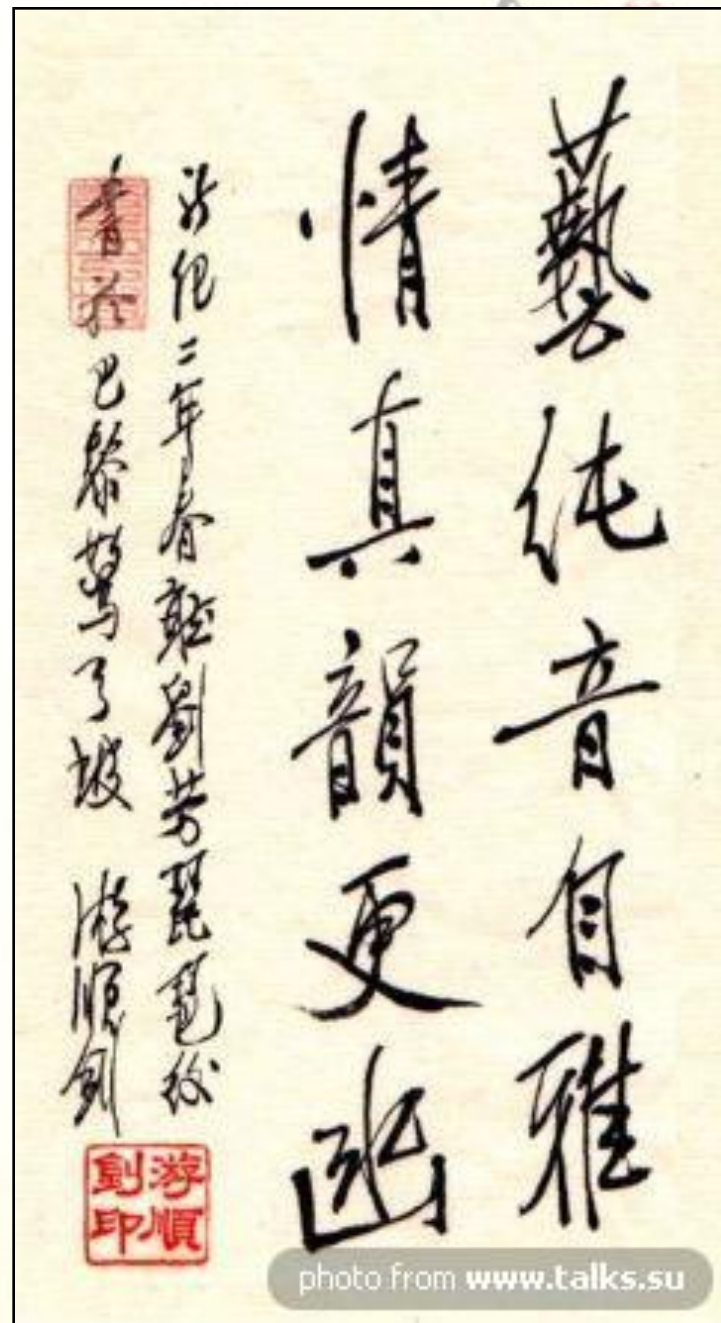 藝純音自雅
情真韻更幽
新纪二年春聽劉芳琵琶後
書於巴黎鶯了坡 游順釗
游順釗印
photo from www.talks.su